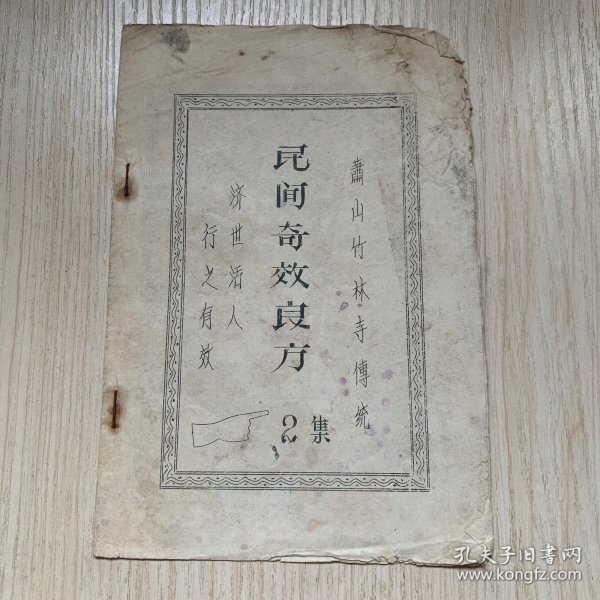 蕭山竹林寺傳统
民间奇效良方
2集
济世活人
行之有效
孔夫子旧书网
www.kongfz.com